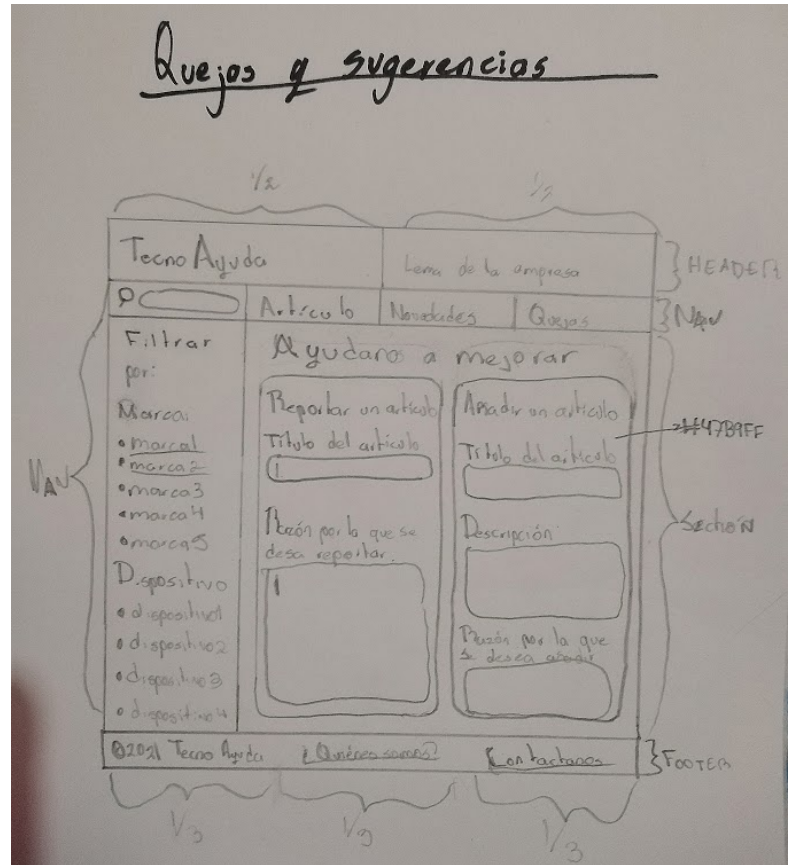 Quejas y sugerencias
1/2
1/2
TecnoAyuda
Lema de la empresa
HEADER
Artículo
Novedades
Quejas
NAV
Filtrar
por:
Marca:
marca1
marca2
marca3
marca4
marca5
Dispositivo
dispositivo1
dispositivo2
dispositivo3
dispositivo4
NAV
Ayudanos a mejorar
Reportar un artículo
Título del artículo
Razón por la que se
desa reportar.
Añadir un artículo
Título del artículo
Descripción
Razón por la que
se desea añadir
#47B9FF
Section
©2021 Tecno Ayuda
¿Quiénes somos?
Contactanos
FOOTER
1/3
1/3
1/3